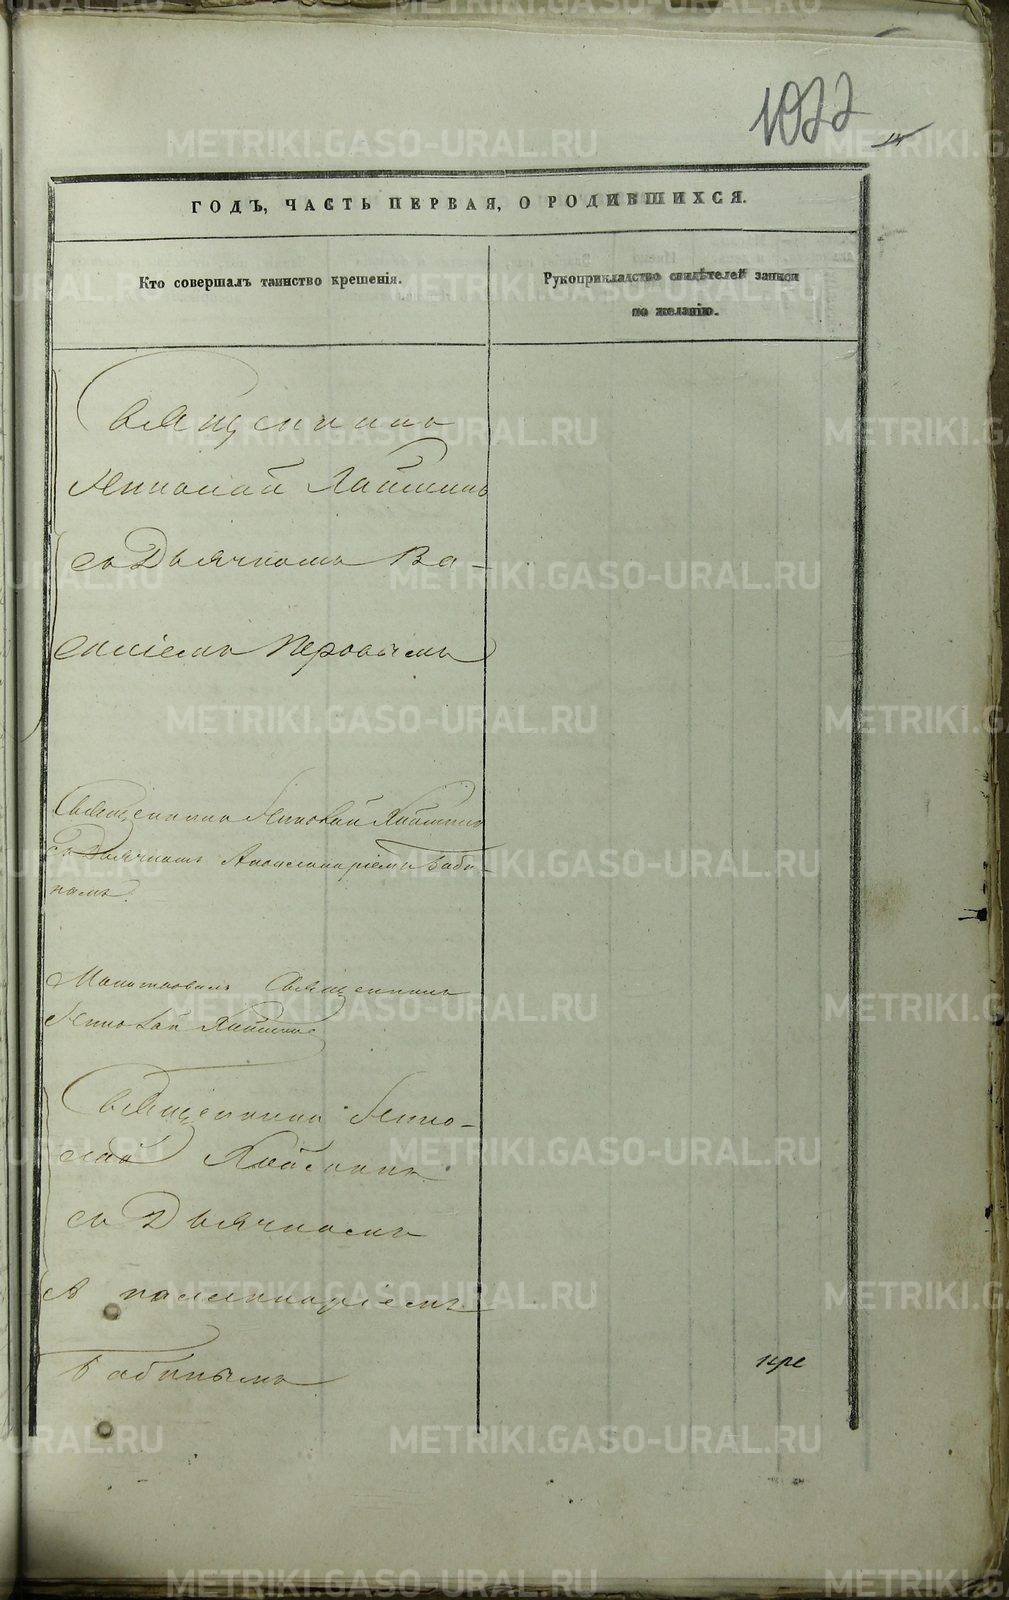 1022
ГОДЪ, ЧАСТЬ ПЕРВАЯ, О РОДИВШИХСЯ.
Кто совершалъ таинство крещенія.
Рукоприкладство свидѣтелей записи
по желанію.
Священникъ
Николай Хайминъ
съ Дьячкомъ Ва-
силіемъ Перовымъ
Священникъ Николай Хайминъ
съ Дьячкомъ Аполлинаріемъ Баби-
нымъ.
Молитвовалъ Священникъ
Николай Хайминъ
Священникъ Нико-
лай Хайминъ
съ Дьячкомъ
Аполлинаріемъ
Бабинымъ
METRIKI.GASO-URAL.RU